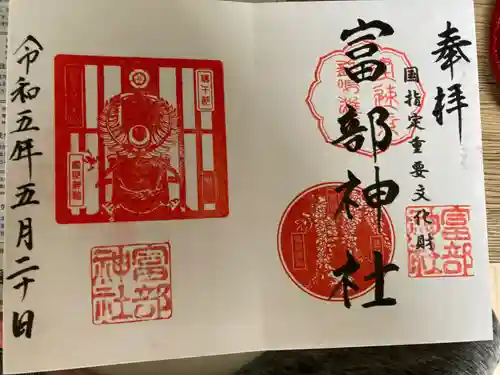 奉拝
国指定重要文化財
富部神社
富部神社
令和五年五月二十日
富部神社